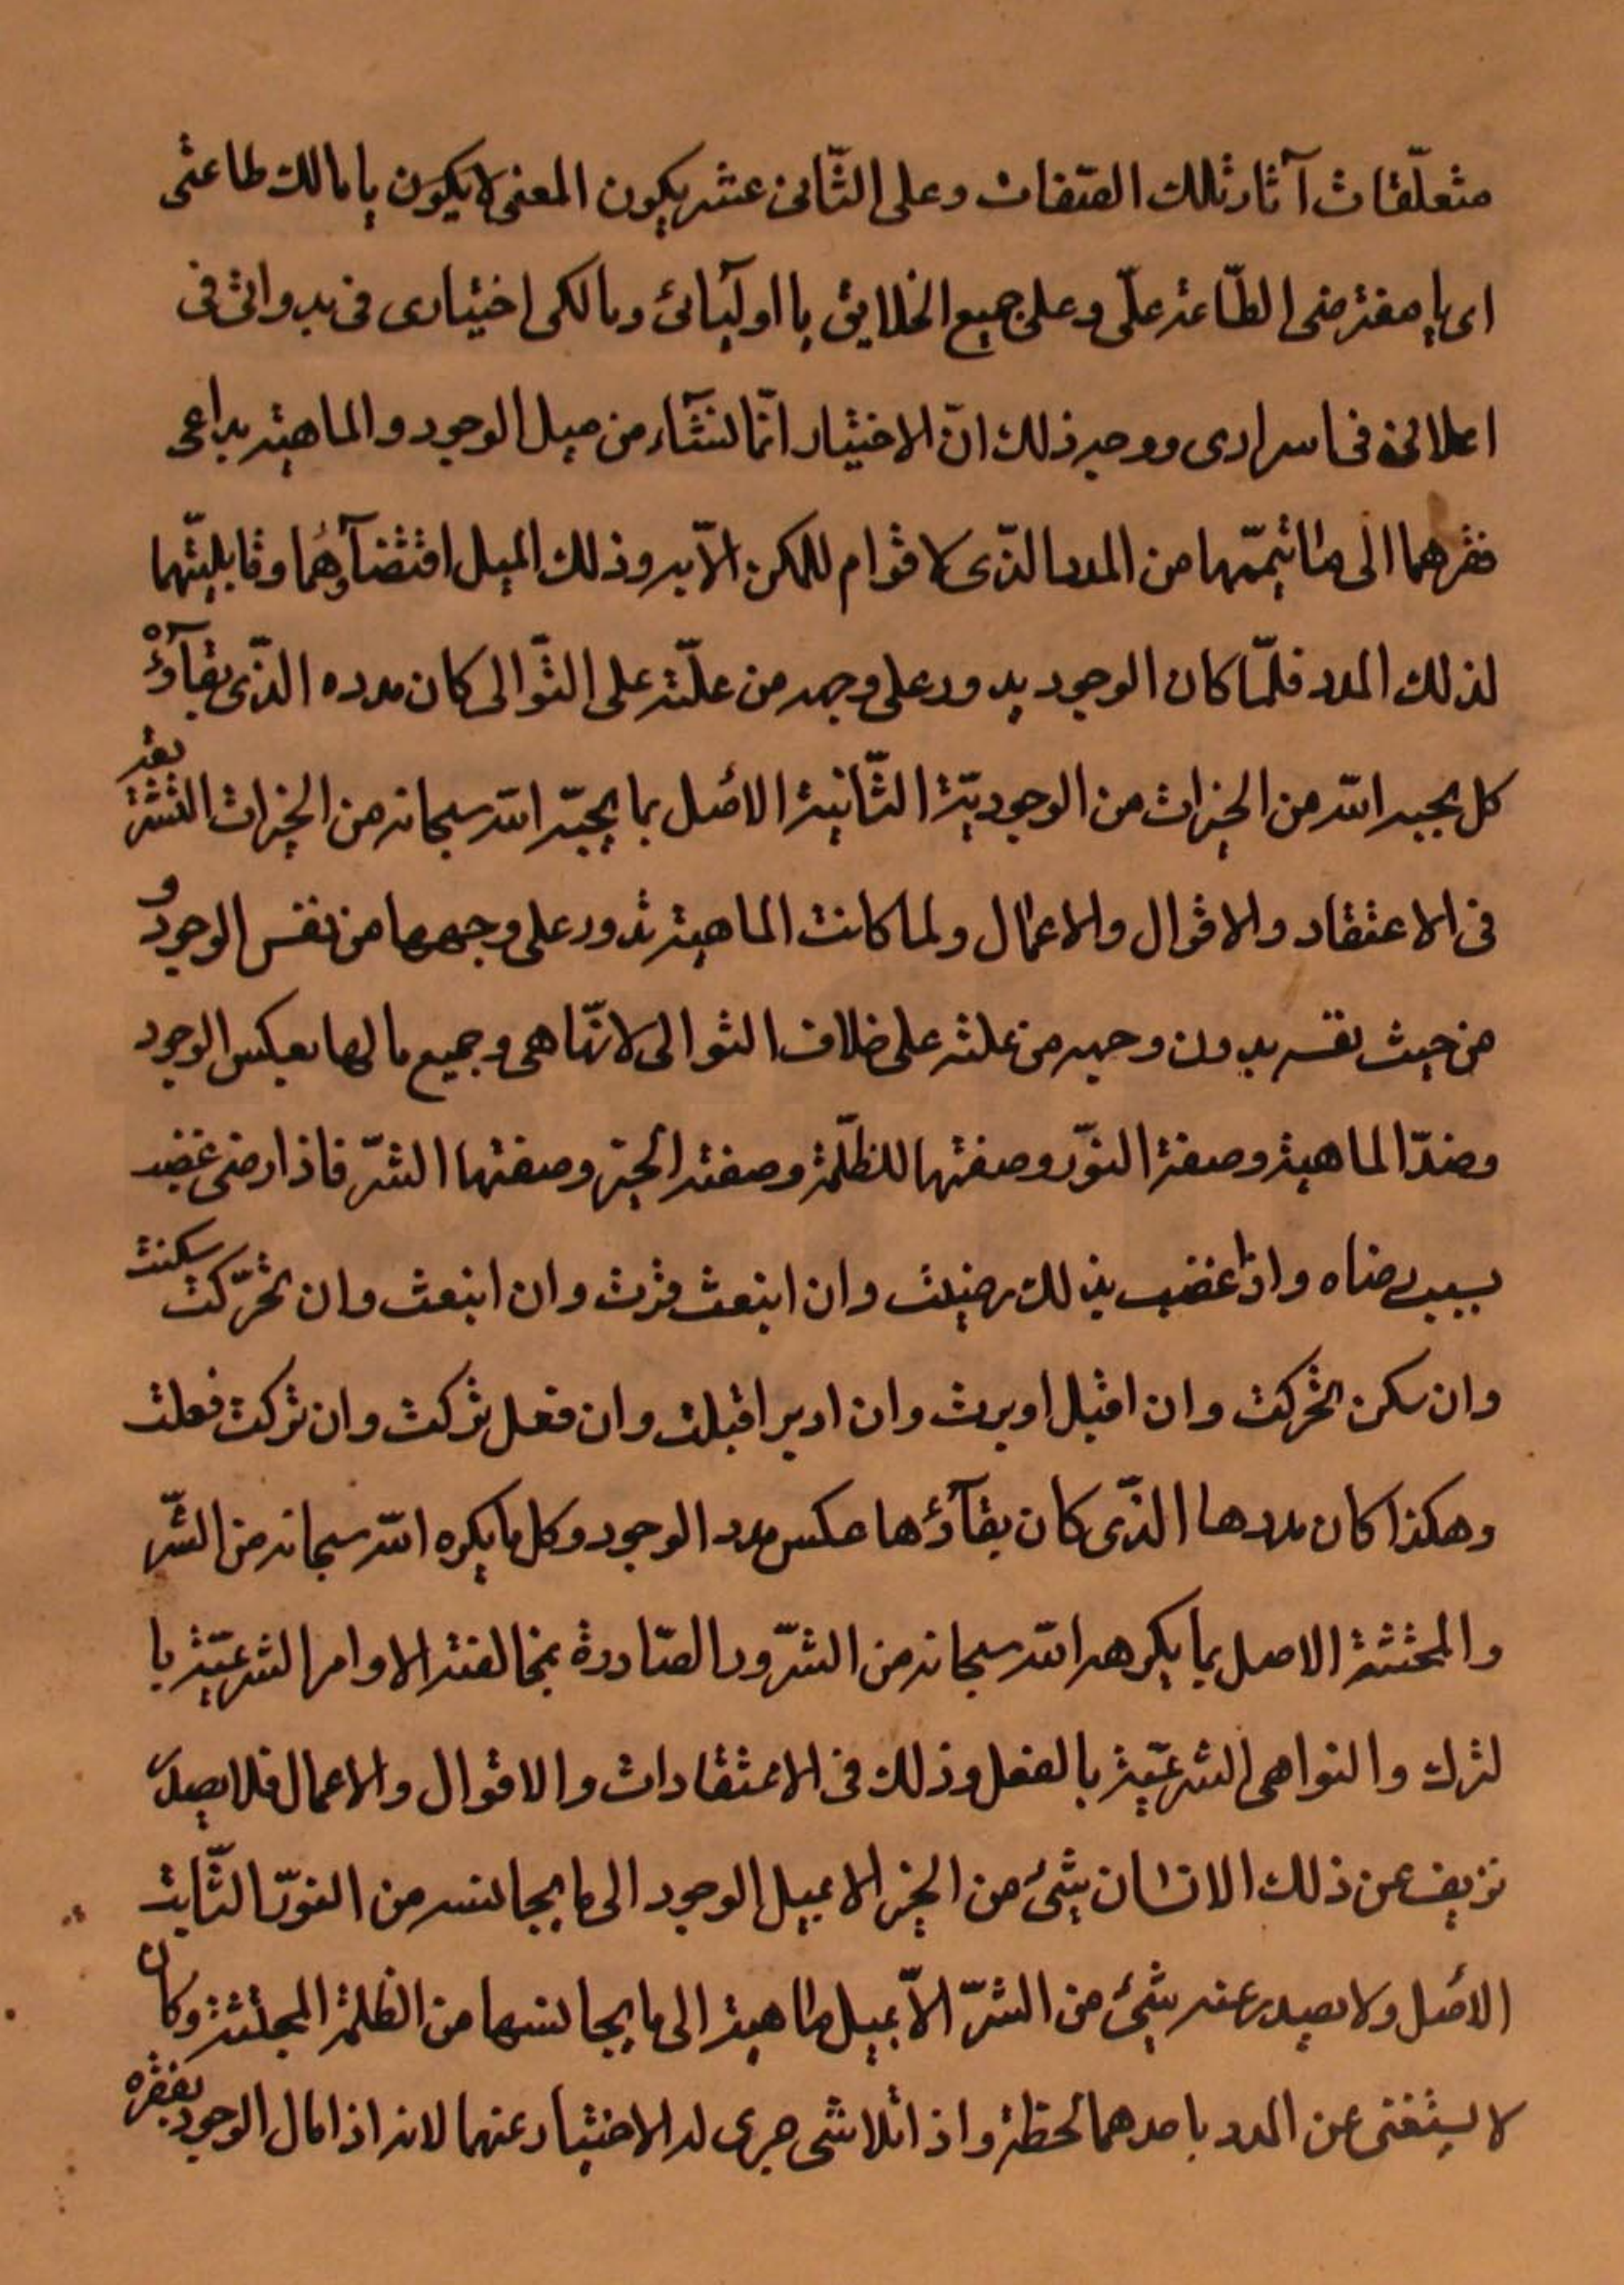 متعلّقات آثار تلك الصّفات وعلى الثّانى عشر يكون المعنى لا يكون يا مالك طاعتى
اى يا مفترضى الطّاعة علّى وعلى جميع الخلايق يا اوليآئى ومالكى اختيارى فى بدواتى فى
اعلانى فى اسرارى ووجه ذلك انّ الاختيار انّما نشآء من ميل الوجود والماهية بداعى
فقرهما الى ما يتممّهما من المدد الذّى لا قوام للمكن الاّ به وذلك الميل اقتضآؤهما وقابليتّهما
لذلك المدد فلمّا كان الوجود يدور على وجهه من علّته على التّوالى كان مدده الذّى بقآؤه
كل يحبه الله من الخيرات من الوجوديّة الثّانية الاصل بما يحبّه الله سبحانه من الخيرات التشريعية
فى الاعتقاد والاقوال والاعمال ولما كانت الماهية تدور على وجهها من نفس الوجود و
من حيث نفسه بدون وجهه من علته على خلاف التوالى لانّها هى وجميع ما لها بعكس الوجود
وضدّ الماهية وصفة النوّر وصفتها للظلّمة وصفته الخير وصفتها الشرّ فاذا رضى غضبت
بسبب رضاه واذا غضب بذلك رضيت وان انبعث قرت وان انبعث وان تحرّكت سكنت
وان سكن تحركت وان اقبل ادبرت وان ادبر اقبلت وان فعل تركت وان تركت فعلت
وهكذا كان مددها الذّى كان بقآؤها عكس مدد الوجود وكل ما يكره الله سبحانه من الشّر
والمجتثة الاصل بما يكرهه الله سبحانه من الشرّور الصّادرة بمخالفته الاوامر الشرعيّة با
لترك والنواهى الشرعيّة بالفعل وذلك فى الاعتقادات والاقوال والاعمال فلا يصدر
عن ذلك الانسان شئ من الخير الا بميل الوجود الى ما يجانسه من النورّ الثّابت
الاصل ولا يصدر عنه شئ من الشرّ الاّ بميل ماهية الى ما يجانسها من الظلمة المجتثة وكان
لا يستغنى عن المدد باحدهما لحظة واذا تلاشى جرى له الاختيار عنهما لانه اذا مال الوجود بفقره